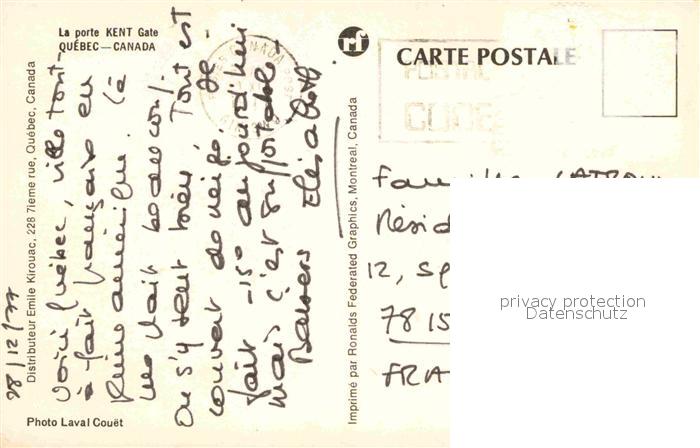 La porte KENT Gate
QUÉBEC — CANADA
rf
CARTE POSTALE
Distributeur Emile Kirouac, 228 7ieme rue, Québec, Canada
Imprimé par Ronalds Federated Graphics, Montreal, Canada
Photo Laval Couët
28/12/77
Voici Québec, ville tout-
à-fait française en
Pleine amérique. Ça
me plait beaucoup.
On s'y sent bien. Tout est
couvert de neige. Il
fait -15° aujourd'hui
mais c'est supportable!
Baisers Elisabeth
Famille
Résid
12, Sq
78 15
FRA
privacy protection
Datenschutz